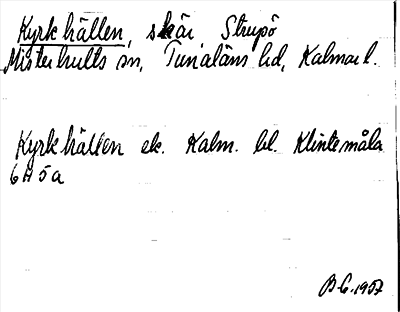 Kyrkhällen, skär Strupö
Misterhults sn, Tunaläns hd, Kalmar l.
Kyrkhällen ek. Kalm. bl. Klintemåla
6H5a
B-C. 1957